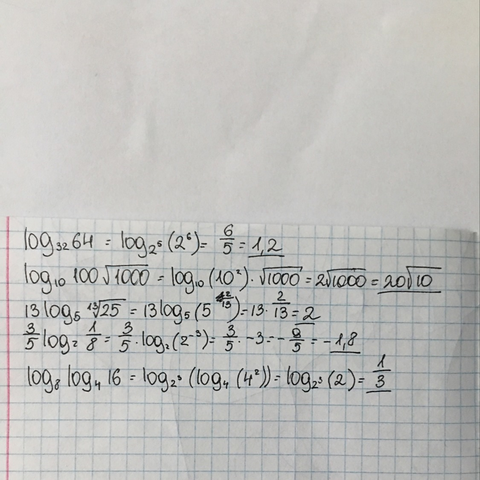 log₃₂64 = log₂⁵(2⁶) = 6/5 = 1,2
log₁₀100√1000 = log₁₀(10²)·√1000 = 2√1000 = 20√10
13log₅ ¹³√25 = 13log₅(5^(2/13)) = 13·2/13 = 2
3/5 log₂ 1/8 = 3/5·log₂(2⁻³) = 3/5·-3 = -9/5 = -1,8
log₈ log₄ 16 = log₂³(log₄(4²)) = log₂³(2) = 1/3